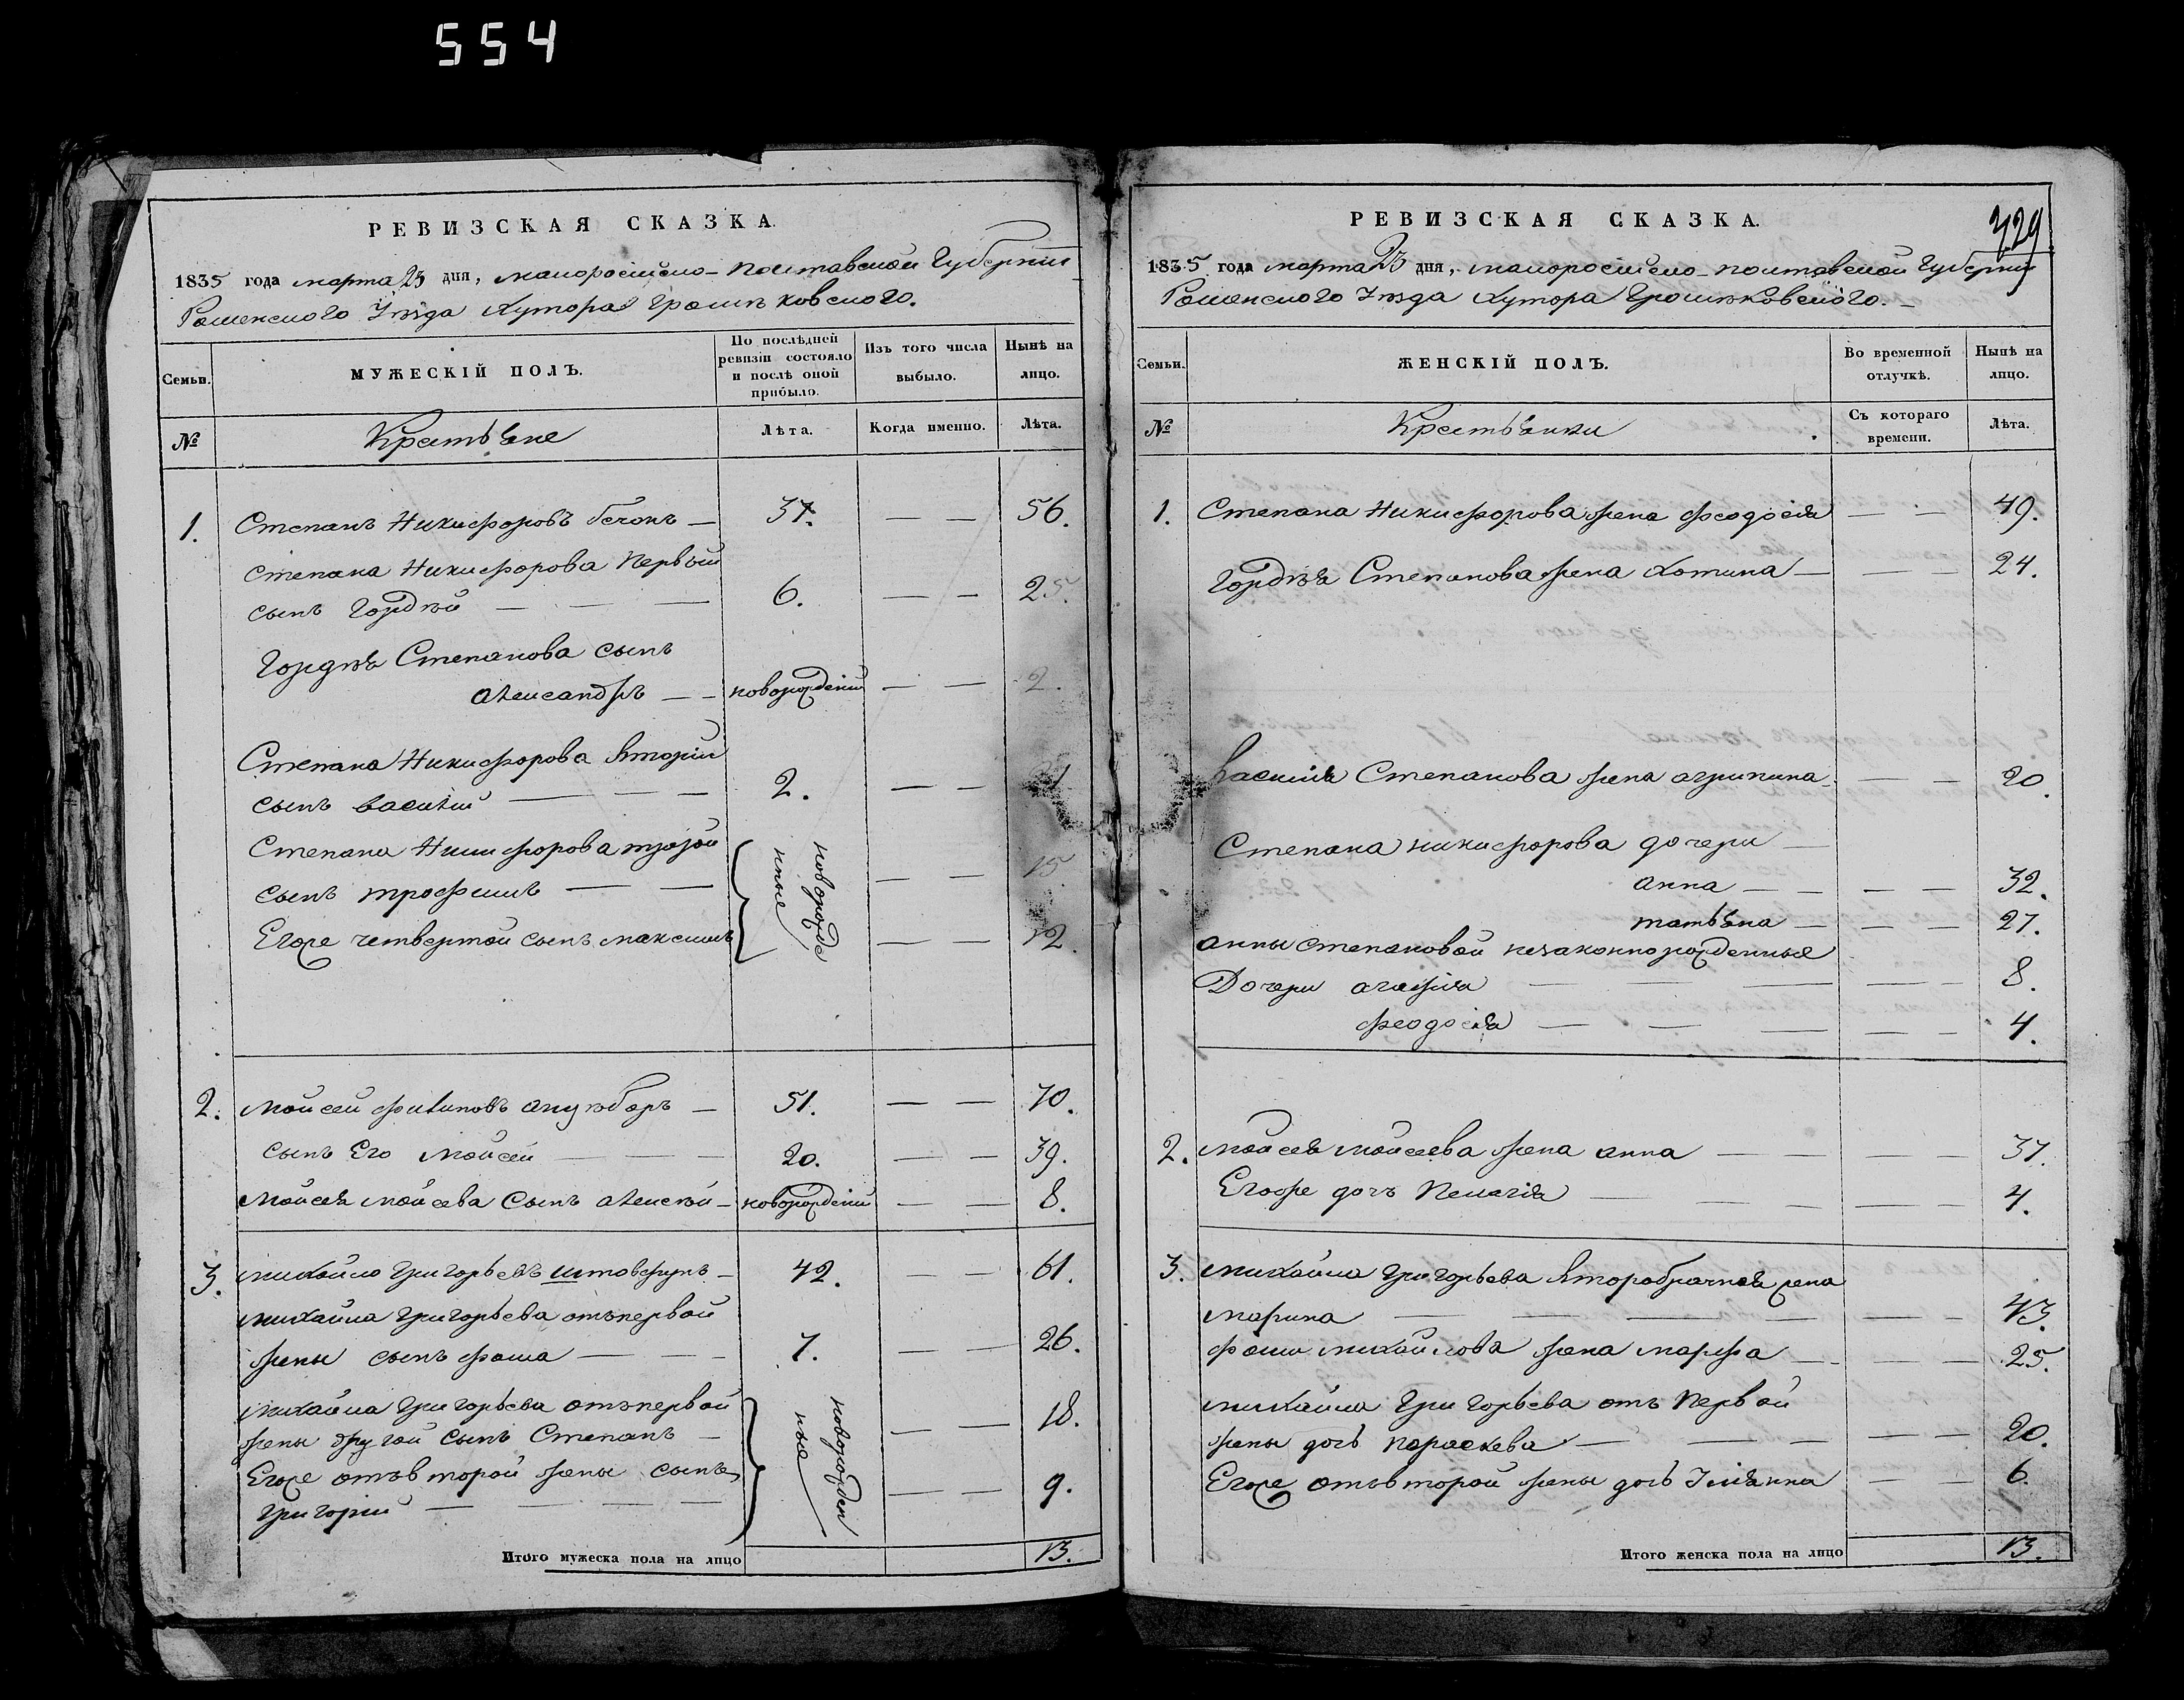 554
РЕВИЗСКАЯ СКАЗКА.
1835 года марта 23 дня, малоросийско-полтавской Губернии
Роменского Уезда Хутора Грошъковского.
Семьи.
МУЖЕСКІЙ ПОЛЪ.
По послѣдней ревизіи состояло и послѣ оной прибыло.
Изъ того числа выбыло.
Нынѣ на лицо.
№
Крестьяне
Лѣта.
Когда именно.
Лѣта.
1. Степанъ Никифоровъ — 37. — — 56.
Степана Никифорова Первый
сынъ Гордѣй — — — 6. — — 25.
Гордѣя Степанова сынъ
александръ — — новорожденій — — 2.
Степана Никифорова вторій
сынъ василій — — — 2. — — 21
Степана Никифорова третой
сынъ трофимъ — — новорожденные — — 15.
Егоже четвертой сынъ максимъ — — 12.
2. мойсей филиповъ — 51. — — 70.
сынъ Его мойсей — — — 20. — — 39.
мойсея мойсева сынъ алексѣй — новорожденій — — 8.
3. михайло григорьевъ — 42. — — 61.
михайла григорьева отъпервой
жены сынъ фома — — — 7. — — 26.
михайла григорьева отъпервой
жены другой сынъ Степанъ — новорожденные — — 18.
Егоже отъвторой жены сынъ
григорій — — — — — — 9.
Итого мужеска пола на лицо 13.
РЕВИЗСКАЯ СКАЗКА.
429
1835 года марта 23 дня, малоросийско-полтавской Губернии
Роменского Уезда Хутора Грошъковского. —
Семьи.
ЖЕНСКІЙ ПОЛЪ.
Во временной отлучкѣ.
Нынѣ на лицо.
№
Крестьянки
Съ котораго времени.
Лѣта.
1. Степана Никифорова жена феодосія — — 49.
Гордѣя Степанова жена Хотина — — — 24.
василія Степанова жена агрипина — — — 20.
Степана никифорова дочери —
анна — — — — 32.
татьяна — — — 27.
анны степановой незаконнорожденные
Дочери агафія — — — — — 8.
феодосія — — — — — 4.
2. мойсея мойсеева жена анна — — — — 37.
Егоже дочъ Пелагія — — — — — 4.
3. михайла григорьева второбрачная жена
марина — — — — — — 43.
фомы михайлова жена марфа — — — 25.
михайла григорьева отъ Первой
жены дочь параскева — — — — — 20.
Егоже отъвторой жены дочь Іулянна — — 6.
Итого женска пола на лицо 13.